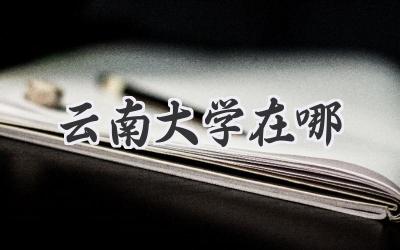 云南大学在哪